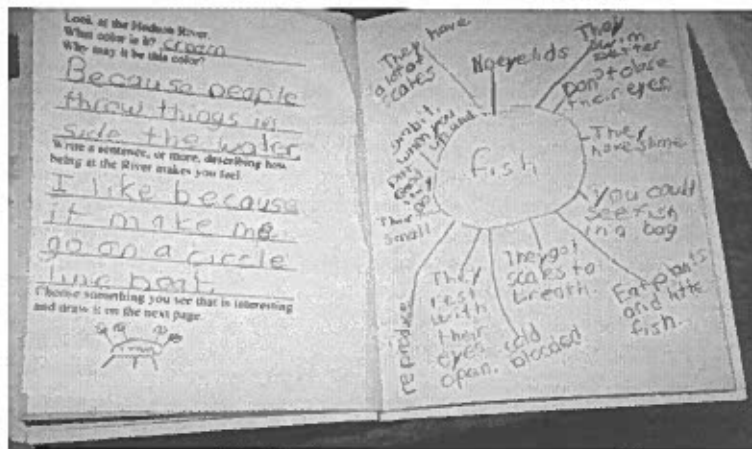 Look at the Hudson River.
What color is it? cream
Why may it be this color?
Because people
throw things in
side the water
Write a sentence, or more, describing how
being at the River makes you feel.
I like because
it make me
go on a circle
line boat.
Choose something you see that is interesting
and draw it on the next page.
They have
a lot of
scales
No eyelids
They
swim
better
Don't close
their eyes.
They
have slime
fish
You could
see fish
in a bag
Eat plants
and little
fish.
They got
scales to
breath.
cold
blooded
They
rest
with
their
eyes
open.
reproduce
small
when you